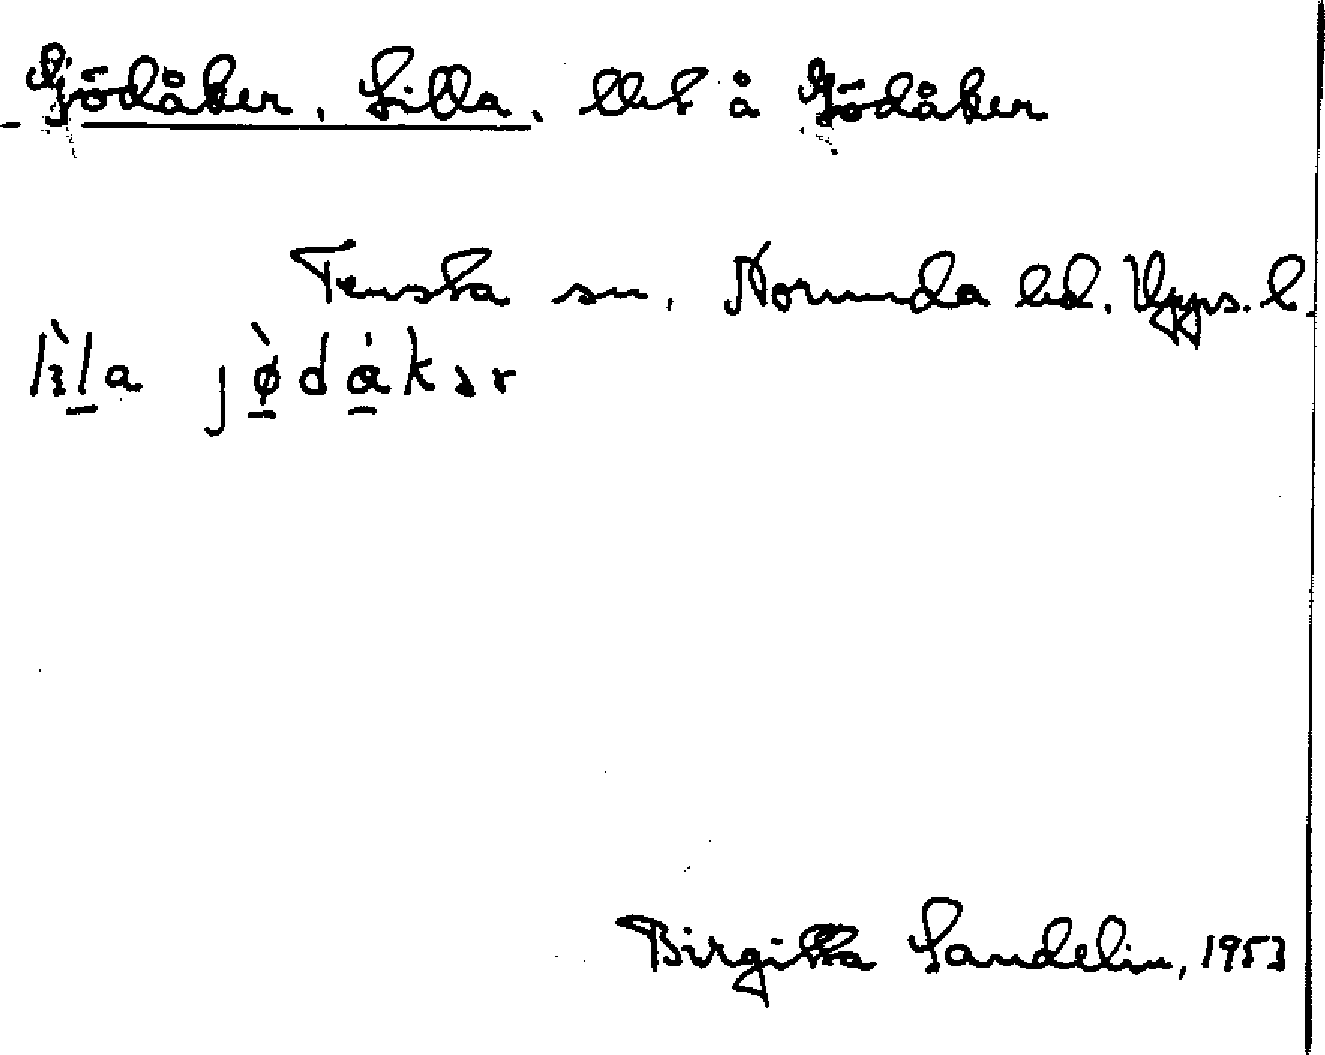 Gödåker, Lilla, lht å Gödåker
Tensta sn, Norunda hd. Upps. l.
lı̀l̲a jø̲̀dά̲kər
Birgitta Sandelin, 1953